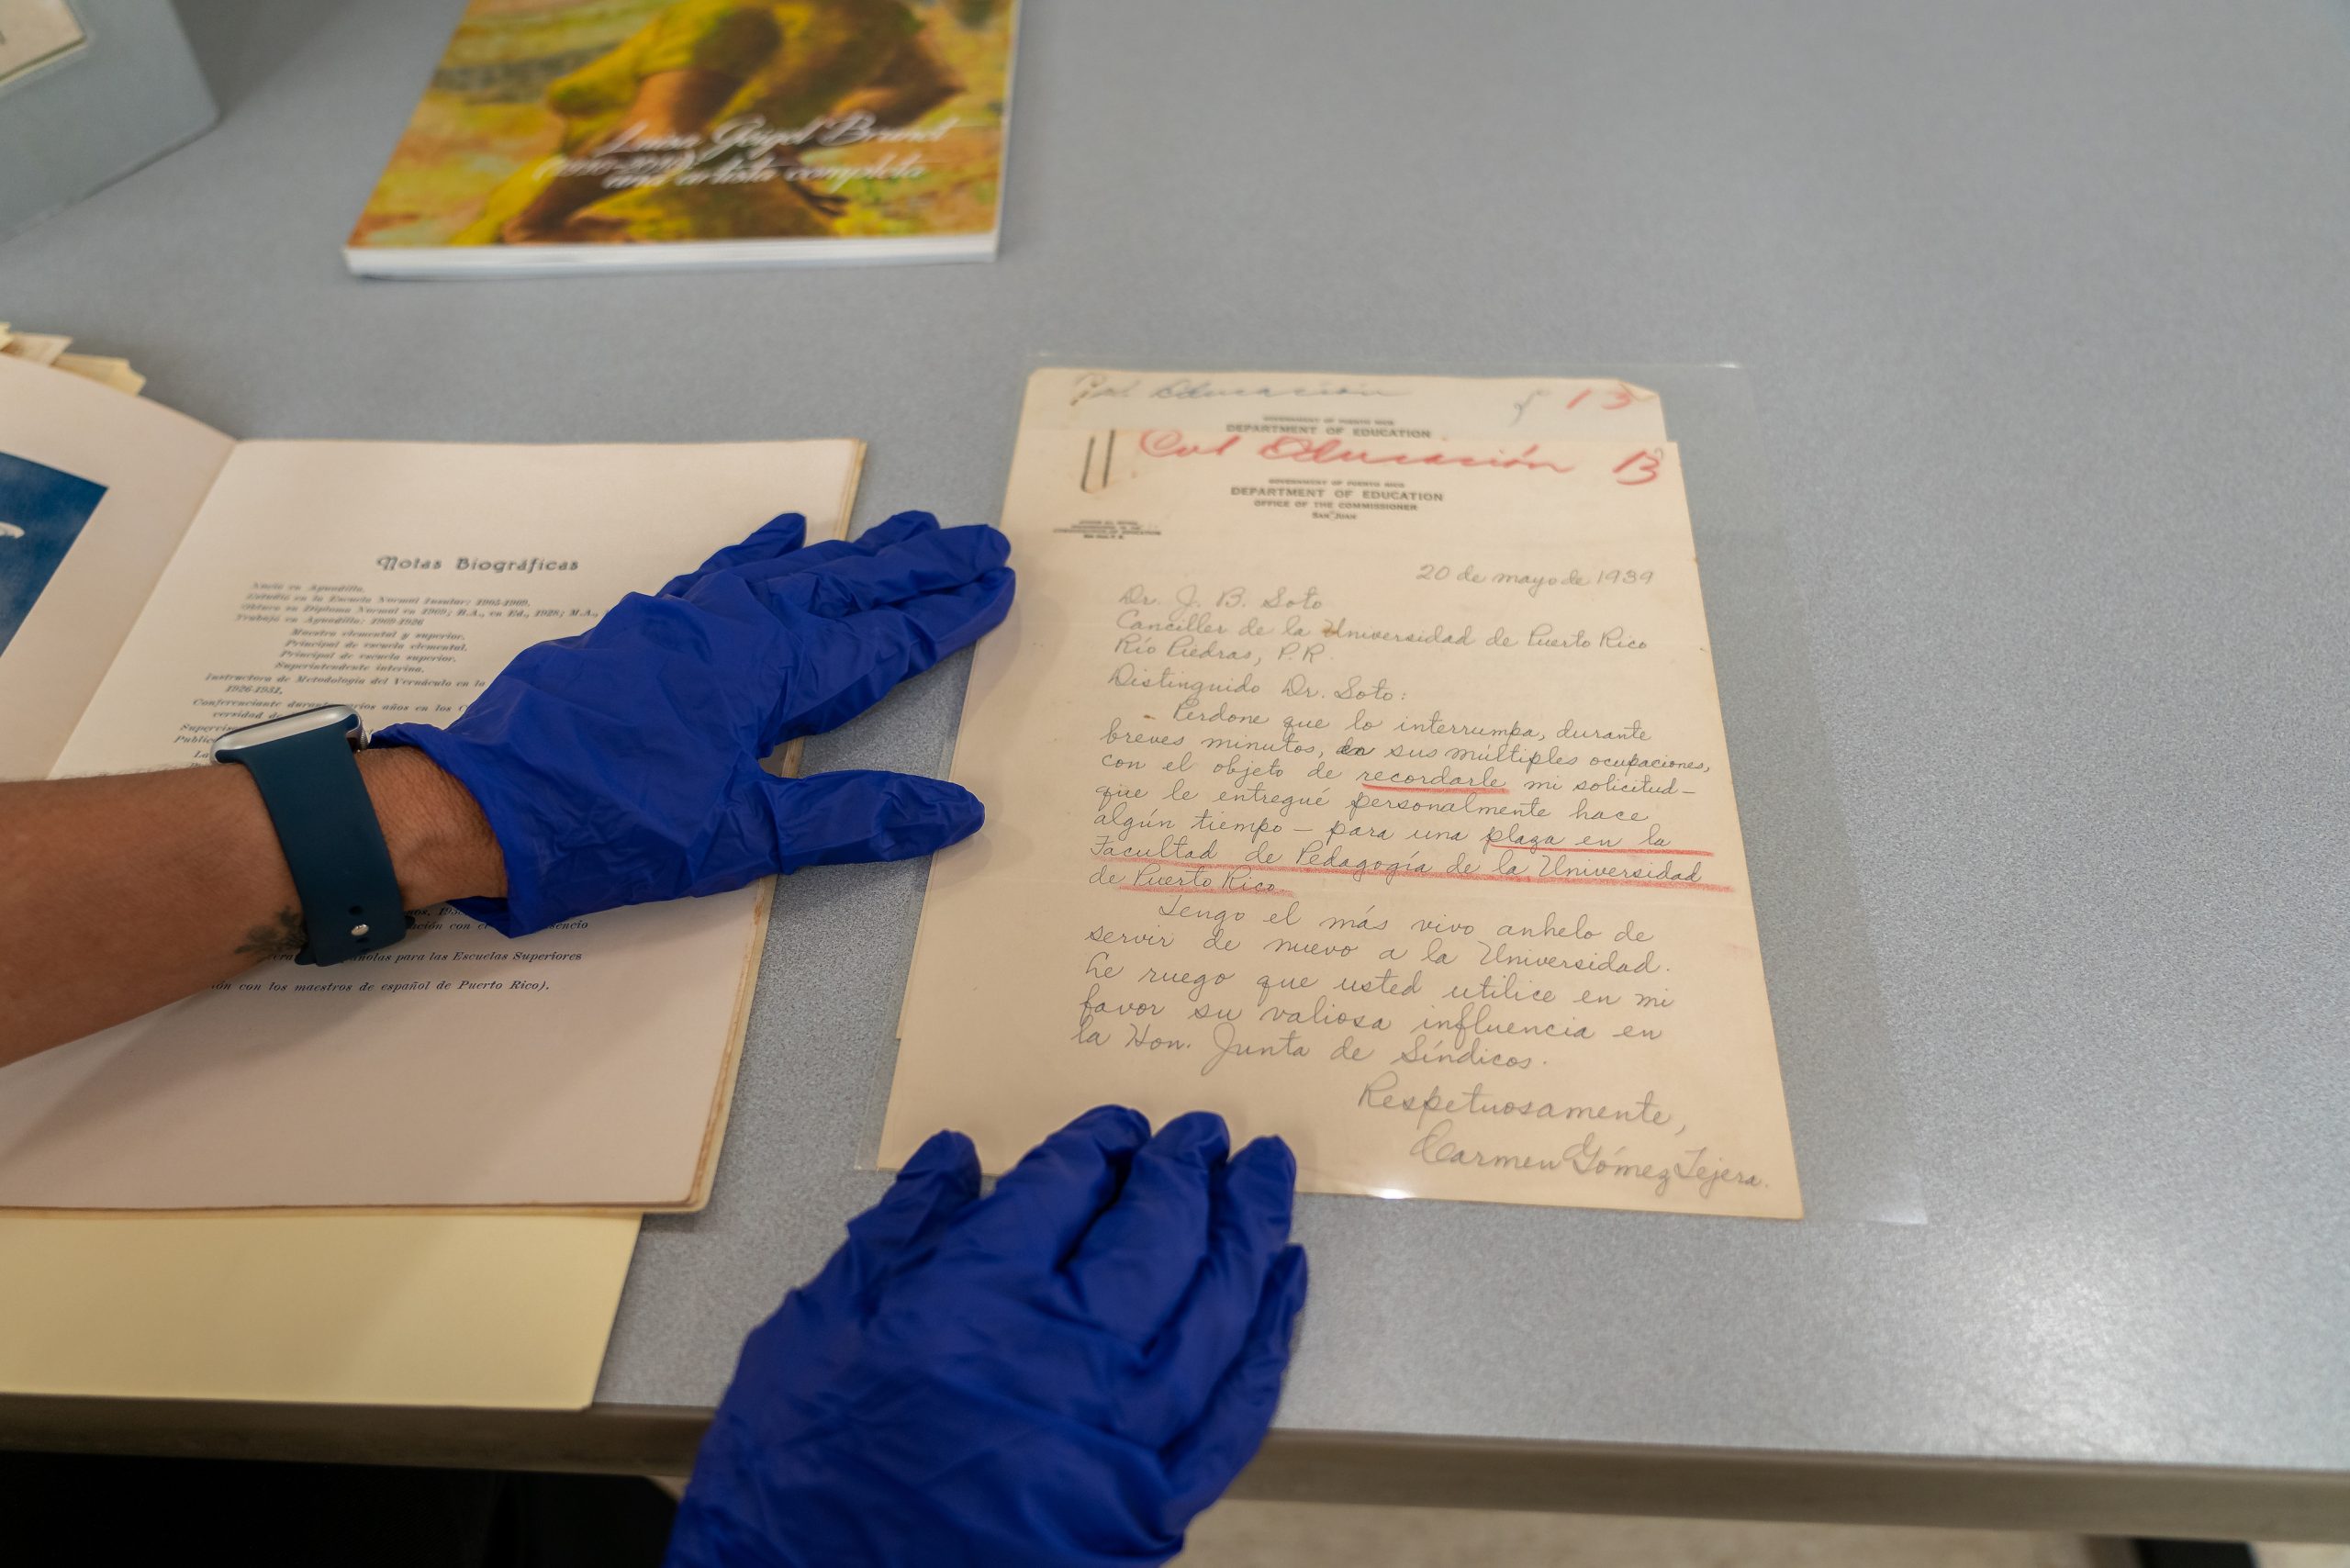 Luisa Geigel Brunet
una artista completa
Notas Biográficas
Nació en Aguadilla.
Estudió en la Escuela Normal Insular: 1905-1909.
Obtuvo su Diploma Normal en 1909; B.A., en Ed., 1928; M.A.,
Trabajó en Aguadilla: 1909-1926
Maestra elemental y superior.
Principal de escuela elemental.
Principal de escuela superior.
Superintendente interina.
Instructora de Metodología del Vernáculo en la
1926-1931.
Conferenciante durante varios años en los
versidad de
ción con el
para las Escuelas Superiores
con los maestros de español de Puerto Rico).
Educación 13
GOVERNMENT OF PUERTO RICO
DEPARTMENT OF EDUCATION
Col Educación 13
GOVERNMENT OF PUERTO RICO
DEPARTMENT OF EDUCATION
OFFICE OF THE COMMISSIONER
SAN JUAN
20 de mayo de 1939
Dr. J. B. Soto
Canciller de la Universidad de Puerto Rico
Río Piedras, P.R.
Distinguido Dr. Soto:
Perdone que lo interrumpa, durante
breves minutos, en sus múltiples ocupaciones,
con el objeto de recordarle mi solicitud—
que le entregué personalmente hace
algún tiempo — para una plaza en la
Facultad de Pedagogía de la Universidad
de Puerto Rico.
Tengo el más vivo anhelo de
servir de nuevo a la Universidad.
Le ruego que usted utilice en mi
favor su valiosa influencia en
la Hon. Junta de Síndicos.
Respetuosamente,
Carmen Gómez Tejera.